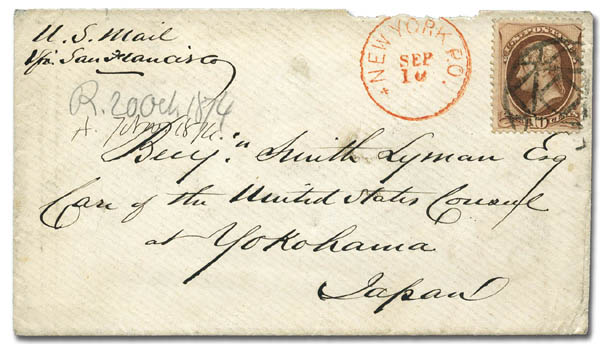 U. S. Mail
Via. San Francisco
NEW YORK P.O.
SEP
10
R. 20 Oct 1874
A. 7 Nov 1874
Benj.n Smith Lyman Esq
Care of the United States Consul
at Yokohama
Japan